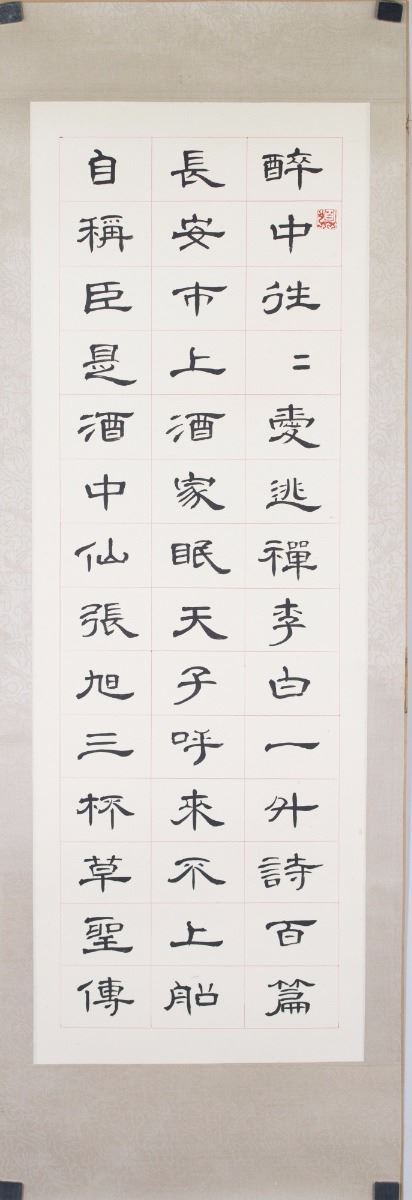 醉中往〻愛逃禪李白一斗詩百篇
長安市上酒家眠天子呼來不上船
自稱臣是酒中仙張旭三杯草聖傳